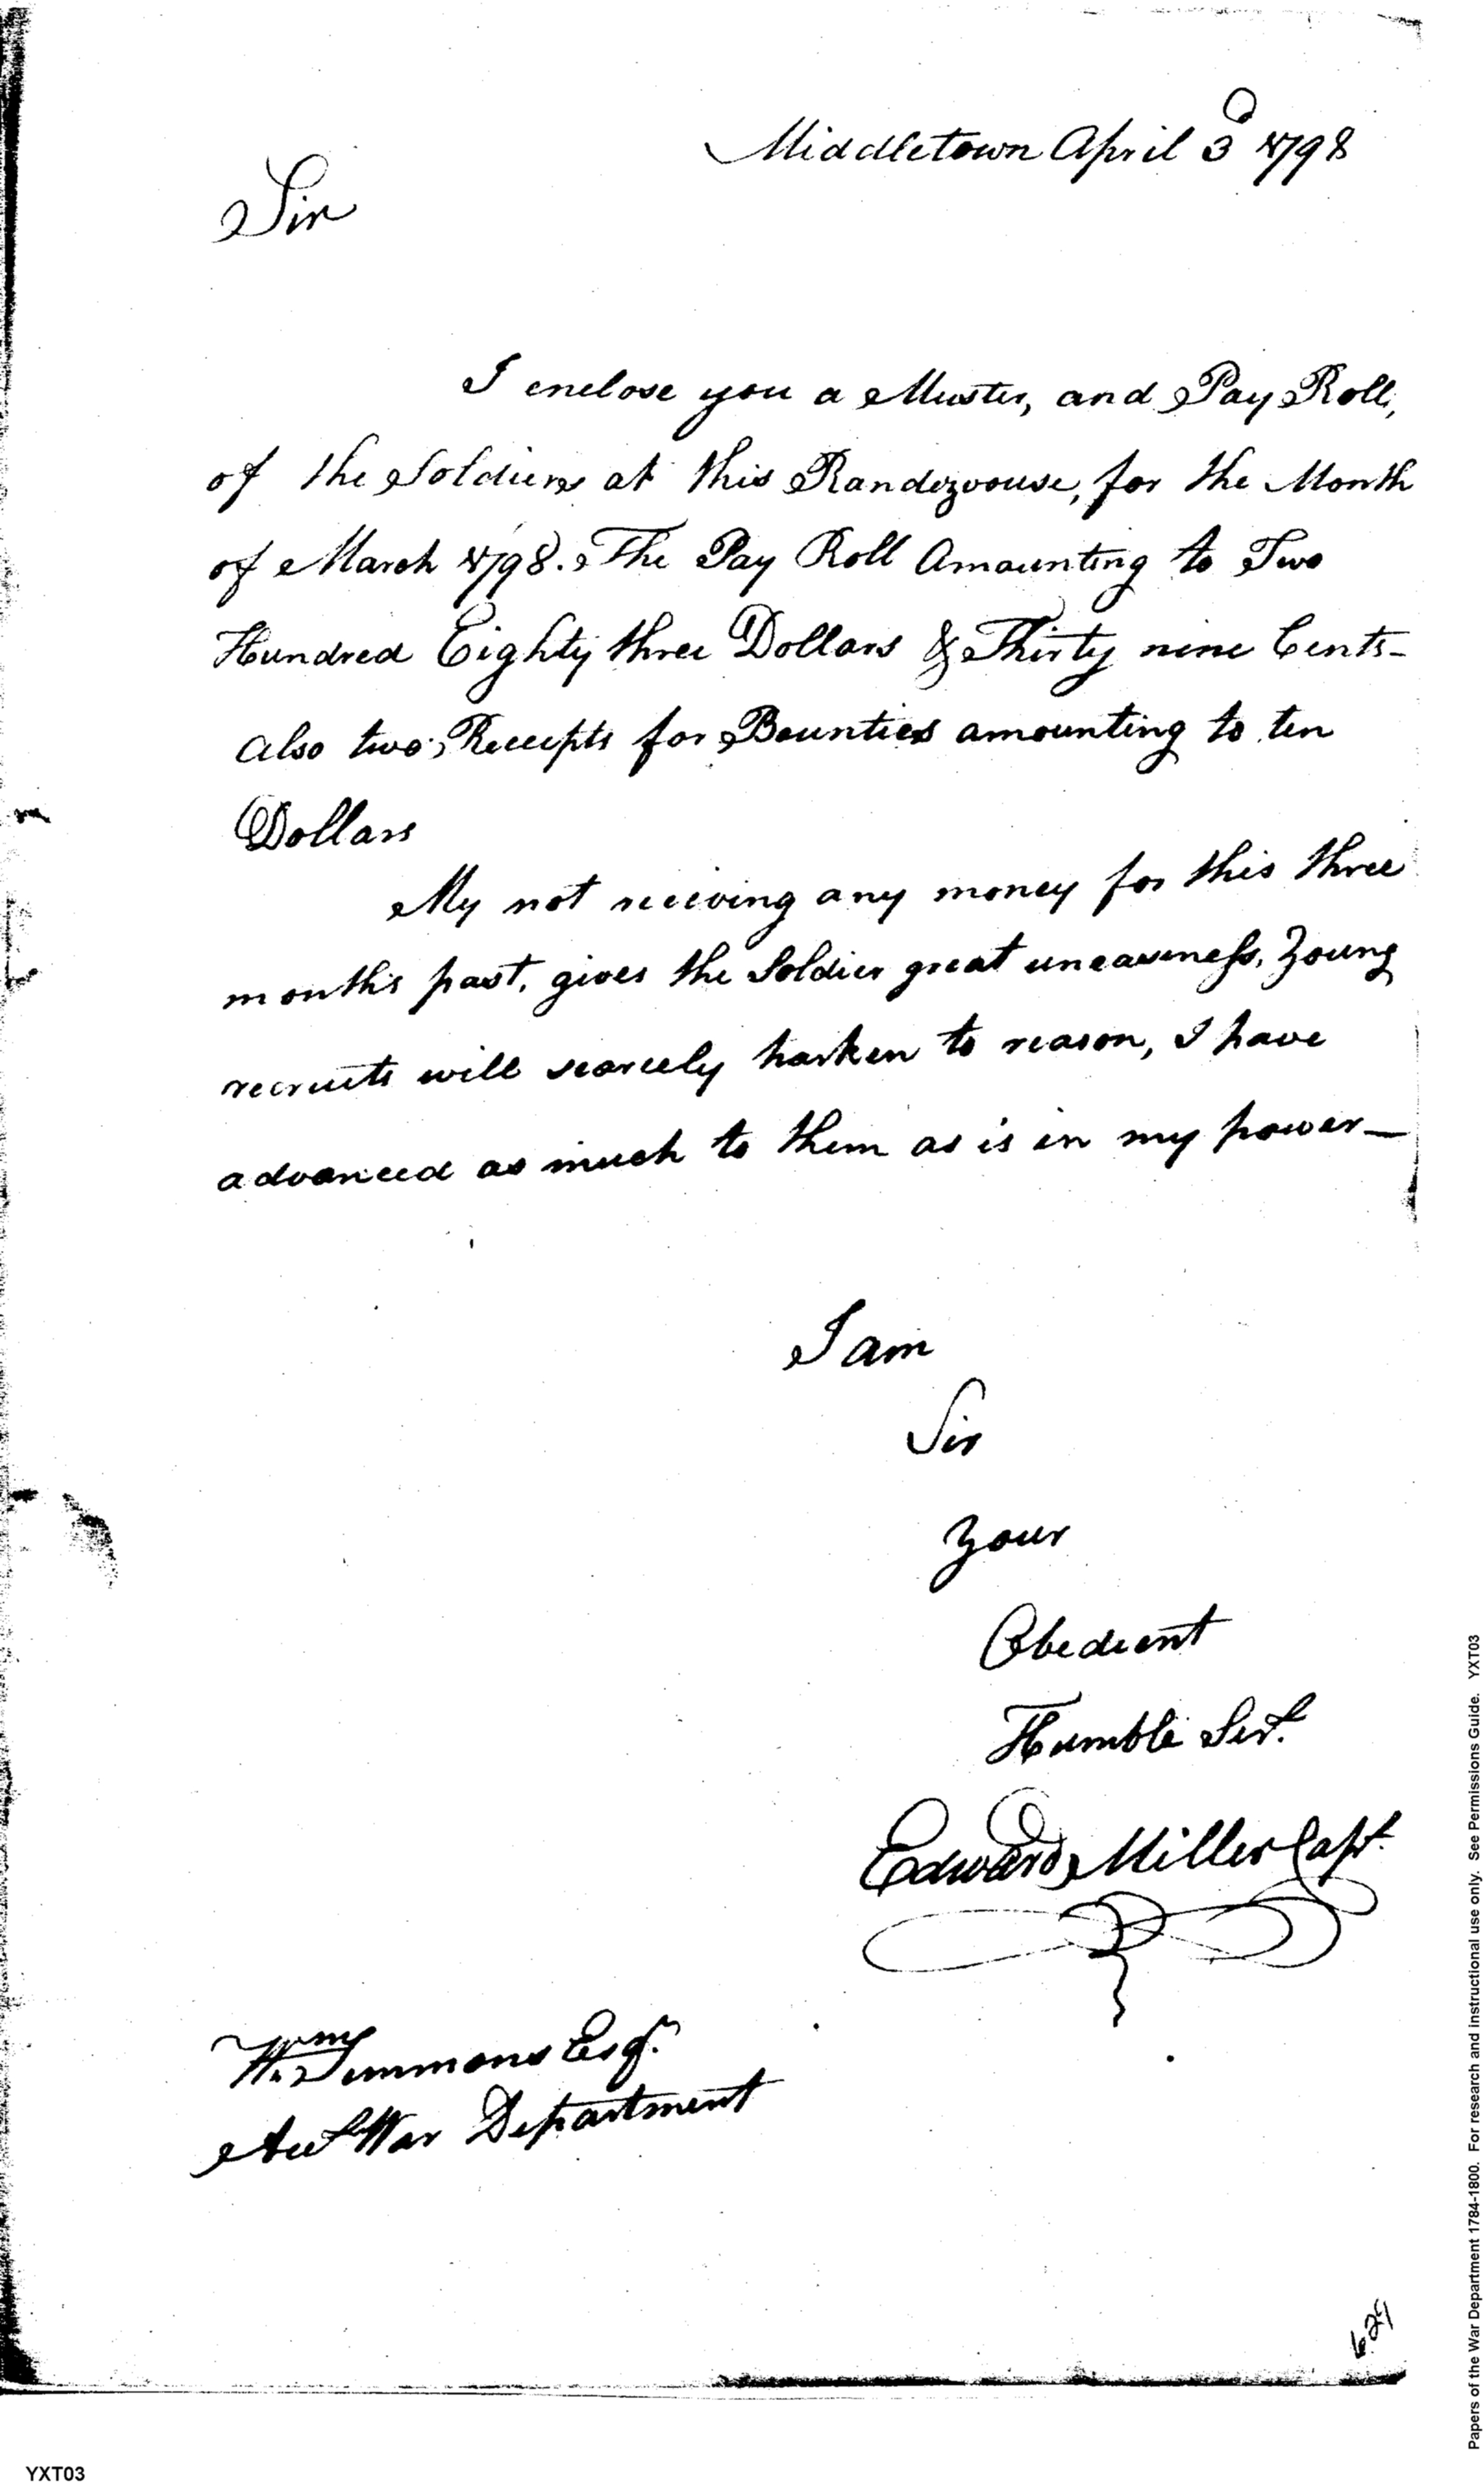 Middletown April 3d 1798
Sir
I enclose you a Muster, and Pay Roll,
of the Soldiers at this Randezvouse, for the Month
of March 1798. The Pay Roll Amounting to Two
Hundred Eighty three Dollars & Thirty nine Cents-
also two Receipts for Bounties amounting to ten
Dollars
My not receiving any money for this three
months past, gives the Soldier great uneasiness, Young
recruits will scarcely harken to reason, I have
advanced as much to them as is in my power—
I am
Sir
Your
Obedient
Humble Servt.
Edward Miller Capt.
Wm Simmons Esqr.
Acct War Department
629
YXT03
Papers of the War Department 1784-1800. For research and instructional use only. See Permissions Guide. YXT03